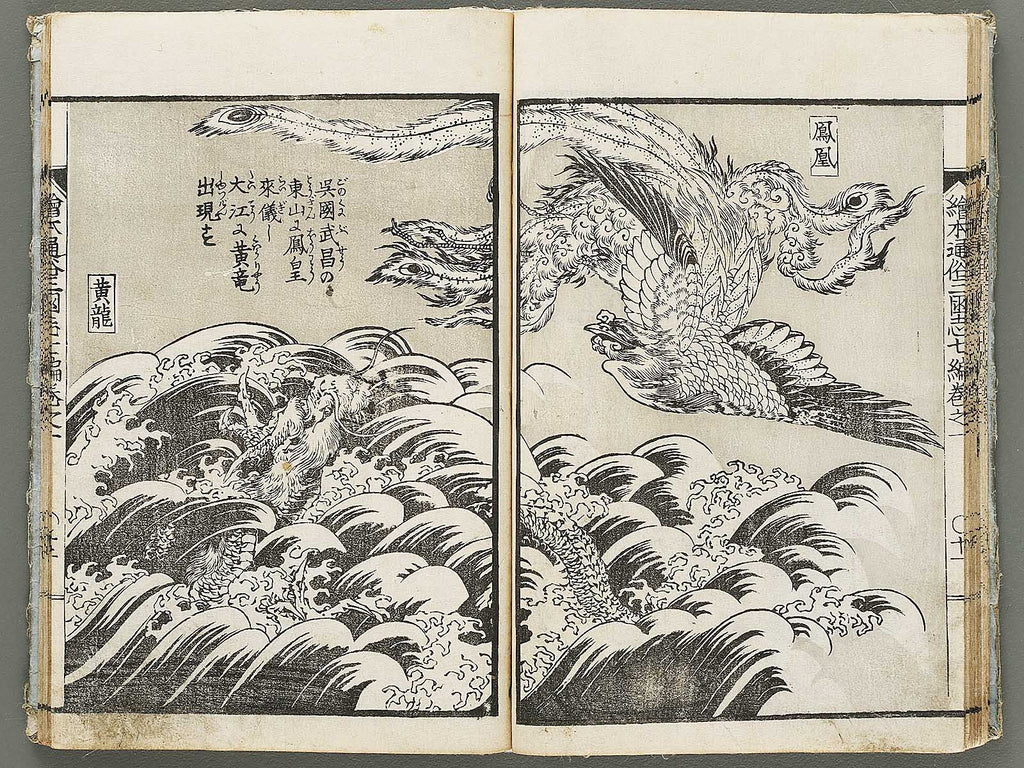 鳳凰
繪本通俗三國志七編巻之一
〇十一
呉國武昌の
東山に鳳皇
來儀し
大江に黄竜
出現す
黄龍
繪本通俗三國志七編巻之一